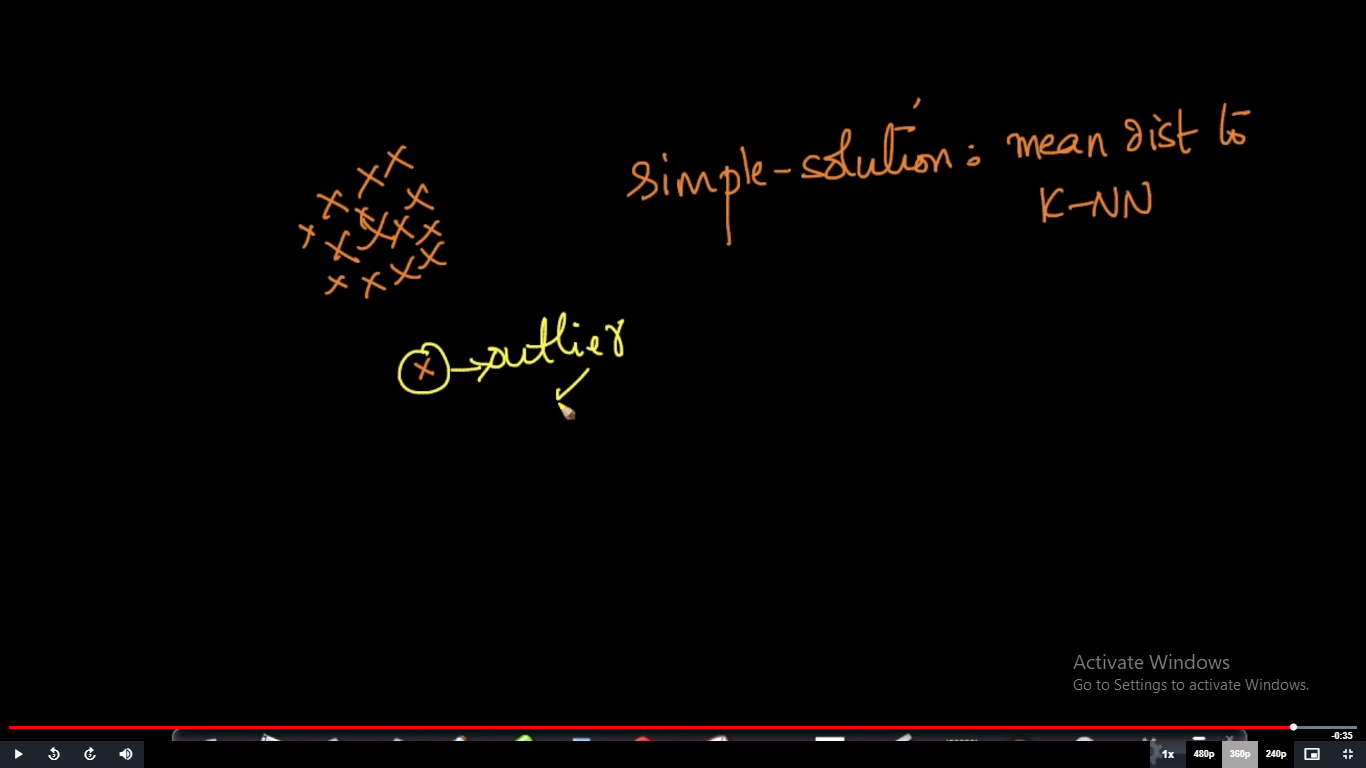 simple-solution: mean dist to
K-NN
x→outlier
Activate Windows
Go to Settings to activate Windows.
-0:35
1x 480p 360p 240p